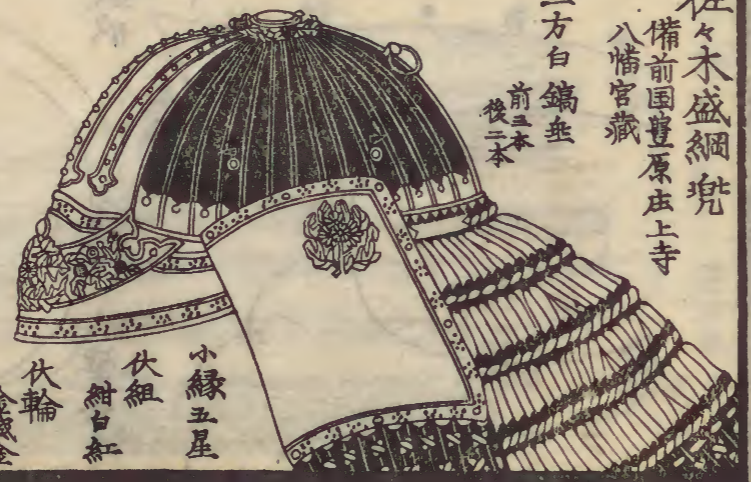 佐々木盛綱兜
備前国豊原庄上寺
八幡宮蔵
二方白 鎬垂
前三本
後二本
小縁五星
伏組
紺白紅
伏輪